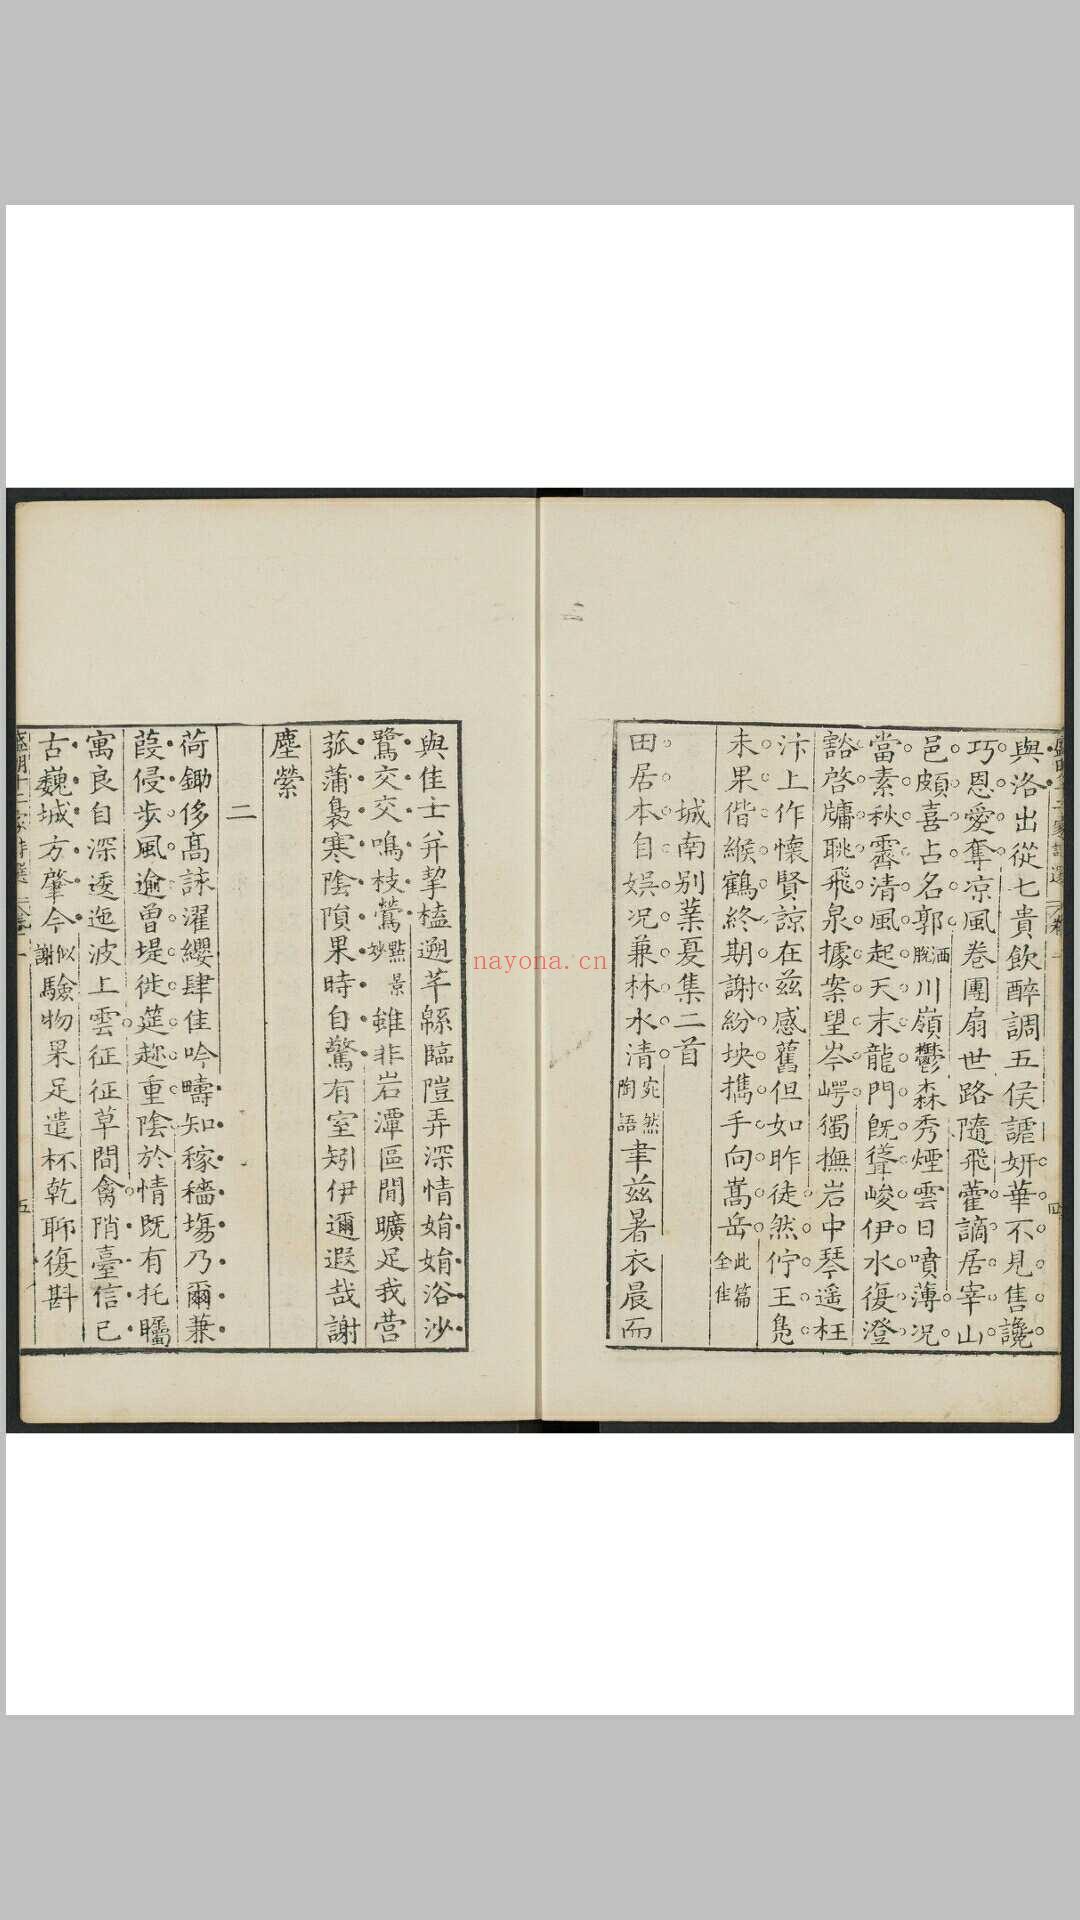 與洛出從七貴飲醉調五侯謔妍華不見售讒
巧恩愛奪凉風卷團扇世路隨飛藿謫居宰山
邑頗喜占名郭洒脫川嶺鬱森秀煙雲日噴薄况
當素秋霽清風起天末龍門旣嶐峻伊水復澄
豁啓牗眺飛泉據案望岑崿獨撫岩中琴遥枉
汴上作懷賢諒在茲感舊但如昨徒然佇王鳧
未果偕緱鶴終期謝紛坱攜手向嵩岳此篇全佳
城南别業夏集二首
田居本自娛况兼林水清宛然陶語聿兹暑衣晨而
四
與佳士幷挈榼遡芊緜臨隑弄深情娟娟浴沙
鷺交交鳴枝鶯點景妙雖非岩潭區閒曠足我營
菰蒲裊寒陰隕果時自驚有室矧伊邇遐哉謝
塵縈
二
荷鋤侈高詠濯纓肆佳吟疇知稼穡塲乃爾兼
葭侵步風逾曾堤徙筵趂重陰於情既有托矚
寓良自深逶迤波上雲征征草間禽陗臺信已
古巍城方肇今似謝驗物果足遣杯乾聊復斟
盛明十二家詩選
五
nayona.cn